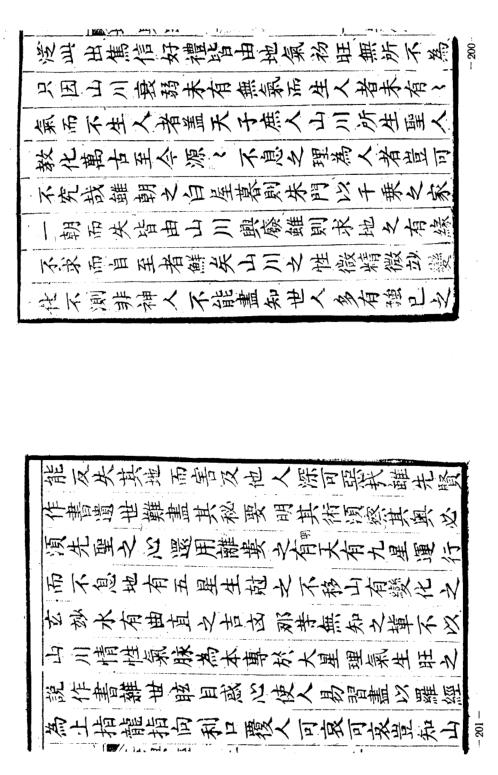 淫此出篤信好禮皆由地氣初旺無所不為
只因山川衰弱未有無氣而生人者未有〻
氣而不生人者盖天子庶人山川所生聖人
教化萬古至今源〻不息之理為人者豈可
不究哉雖朝之白屋暮則朱門以千乘之家
一朝而失皆由山川興廢雖則求地之有緣
不求而自至者鮮矣山川之性微精微玅變
化不測非神人不能盡知世人多有強已之
-200-
能反失其地而害及他人深可惡哉雖先賢
作書遺世難盡其秘要明其術須察其奥必
須先聖之心還用離婁之明有天有九星運行
而不息地有五星生尅之不移山有變化之
玄玅水有曲直之吉凶那等無知之輩不以
山川情性氣脉為本專於大星理氣生旺之
說作書雜世眩目惑心使人易習盡以羅經
為上指龍指向利口覆人可哀可哀豈知山
-201-